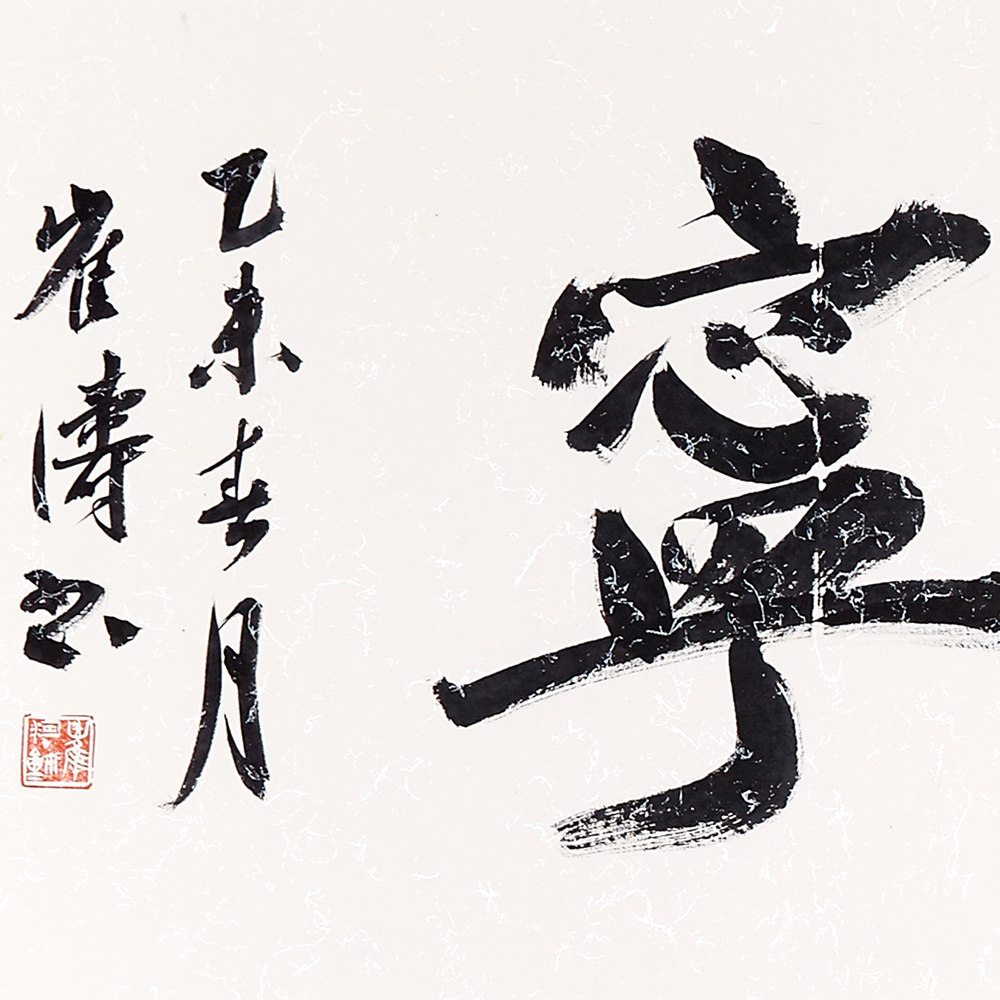 寧
乙未春月
崔濤书